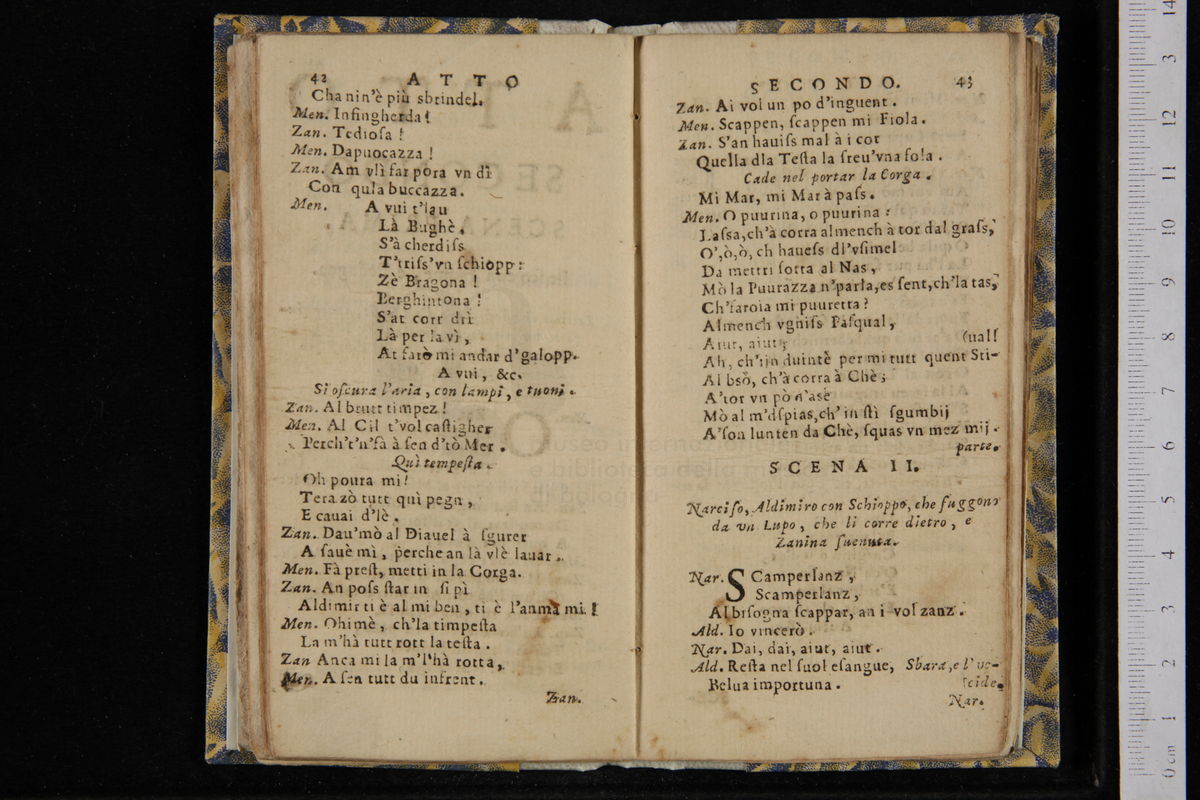 42 ATTO
Cha nin'è più sbrindel.
Men. Infingherda!
Zan. Tediosa!
Men. Dapuocazza!
Zan. Am vlì far pora vn dì
Con qula buccazza.
Men. A vui t'lau
Là Bughè.
S'à cherdiſs
T'triſs'vn ſchiopp:
Zè Bragona!
Berghintona!
S'at corr drì
Là per la vì,
At farò mi andar d'galopp.
A vui, &c.
Si oſcura l'aria, con lampi, e tuoni.
Zan. Al brutt timpez!
Men. Al Cil t'vol caſtigher
Perch't'n'fà à ſen d'tò Mer.
Quì tempeſta.
Oh poura mi!
Tera zò tutt quì pegn,
E cauai d'lè.
Zan. Dau'mò al Diauel à ſgurer
A ſauè mì, perche an là vlè lauar.
Men. Fà preſt, metti in la Corga.
Zan. An poſs ſtar in ſi pì
Aldimir ti è al mi ben, ti è l'anma mi.!
Men. Ohimè, ch'la timpeſta
La m'hà tutt rott la teſta.
Zan Anca mi la m'l'hà rotta,
Men. A ſen tutt du infrent.
Zan.
SECONDO. 43
Zan. Ai vol un po d'inguent.
Men. Scappen, ſcappen mi Fiola.
Zan. S'an hauiſs mal à i cor
Quella dla Teſta la ſreu'vna fola.
Cade nel portar la Corga.
Mi Mar, mi Mar à paſs.
Men. O puurina, o puurina:
Laſsa, ch'à corra almench à tor dal graſs,
O',ò,ò, ch haueſs dl'vſimel
Da mettri ſotta al Nas,
Mò la Puurazza n'parla, es ſent, ch'la tas,
Ch'faroia mi puuretta?
Almench vgniſs Paſqual,
Aiut, aiut, (ual!
Ah, ch'ijn duintè per mi tutt quent Sti-
Al bsò, ch'à corra à Chè;
A'tor vn pò d'asè
Mò al m'dſpias, ch' in ſtì ſgumbij
A'ſon lunten da Chè, ſquas vn mez mij.
parte.
SCENA II.
Narciſo, Aldimiro con Schioppo, che fuggono
da vn Lupo, che li corre dietro, e
Zanina ſuenuta.
Nar. SCamperlanz,
Scamperlanz,
Al biſogna ſcappar, an i vol zanz.
Ald. Io vincerò.
Nar. Dai, dai, aiut, aiut.
Ald. Reſta nel ſuol eſangue, Sbara, e l'uc-
Belua importuna. (cide.
Nar.